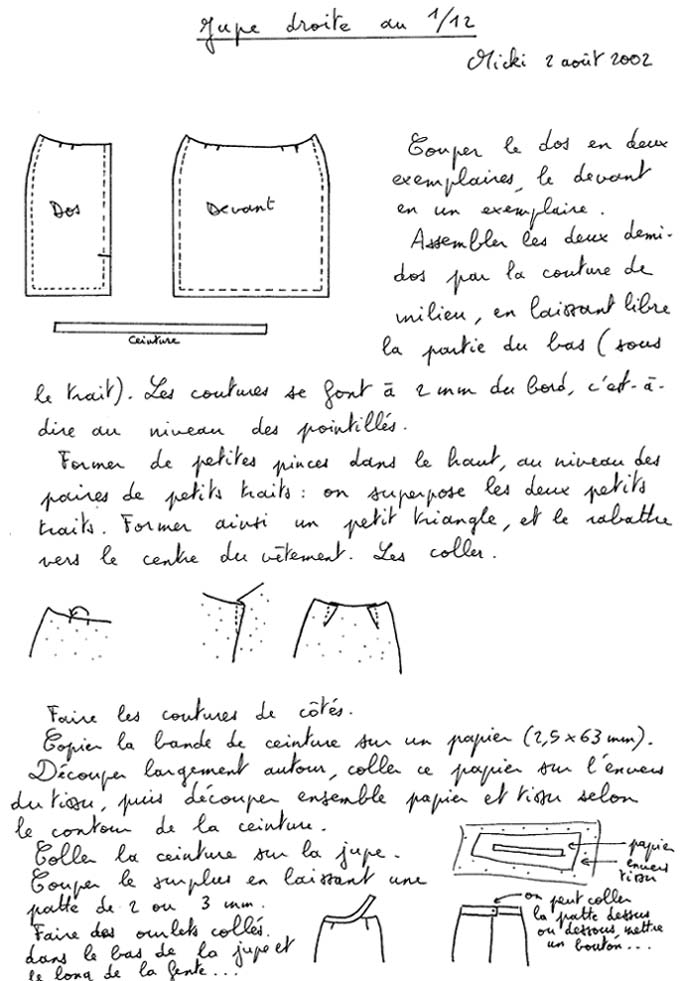 Jupe droite au 1/12
Micki 2 août 2002
Dos
Devant
Ceinture
Couper le dos en deux
exemplaires, le devant
en un exemplaire.
Assembler les deux demi-
dos par la couture de
milieu, en laissant libre
la partie du bas (sous
le trait). Les coutures se font à 2 mm du bord, c'est-à-
dire au niveau des pointillés.
Former de petites pinces dans le haut, au niveau des
paires de petits traits : on superpose les deux petits
traits. Former ainsi un petit triangle, et le rabattre
vers le centre du vêtement. Les coller.
Faire les coutures de côtés.
Copier la bande de ceinture sur un papier (2,5 x 63 mm).
Découper largement autour, coller ce papier sur l'envers
du tissu, puis découper ensemble papier et tissu selon
le contour de la ceinture.
Coller la ceinture sur la jupe.
Couper le surplus en laissant une
patte de 2 ou 3 mm.
Faire des ourlets collés.
dans le bas de la jupe et
le long de la fente...
papier
envers
tissu
on peut coller
la patte dessus
ou dessous, mettre
un bouton...